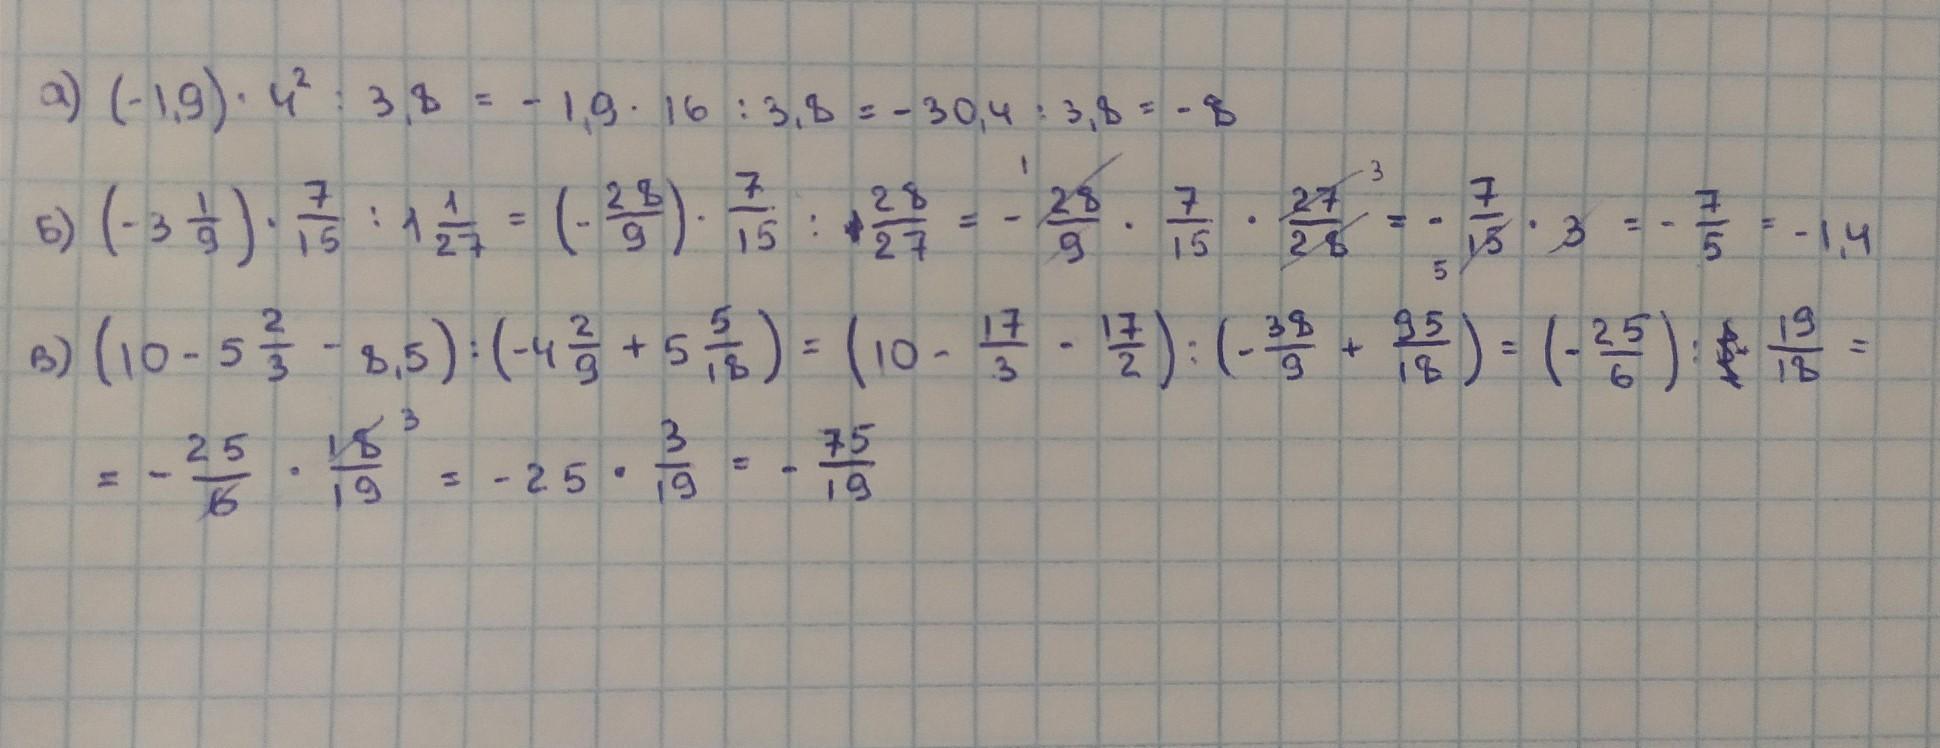 а) (-1,9) · 4² : 3,8 = -1,9 · 16 : 3,8 = -30,4 : 3,8 = -8
б) (-3 1/9) · 7/15 : 1 1/27 = (-28/9) · 7/15 : 28/27 = - 28/9 · 7/15 · 27/28 = - 7/15 · 3 = - 7/5 = -1,4
в) (10 - 5 2/3 - 8,5) : (-4 2/9 + 5 5/18) = (10 - 17/3 - 17/2) : (-38/9 + 95/18) = (-25/6) : 19/18 =
= - 25/6 · 18/19 = -25 · 3/19 = - 75/19